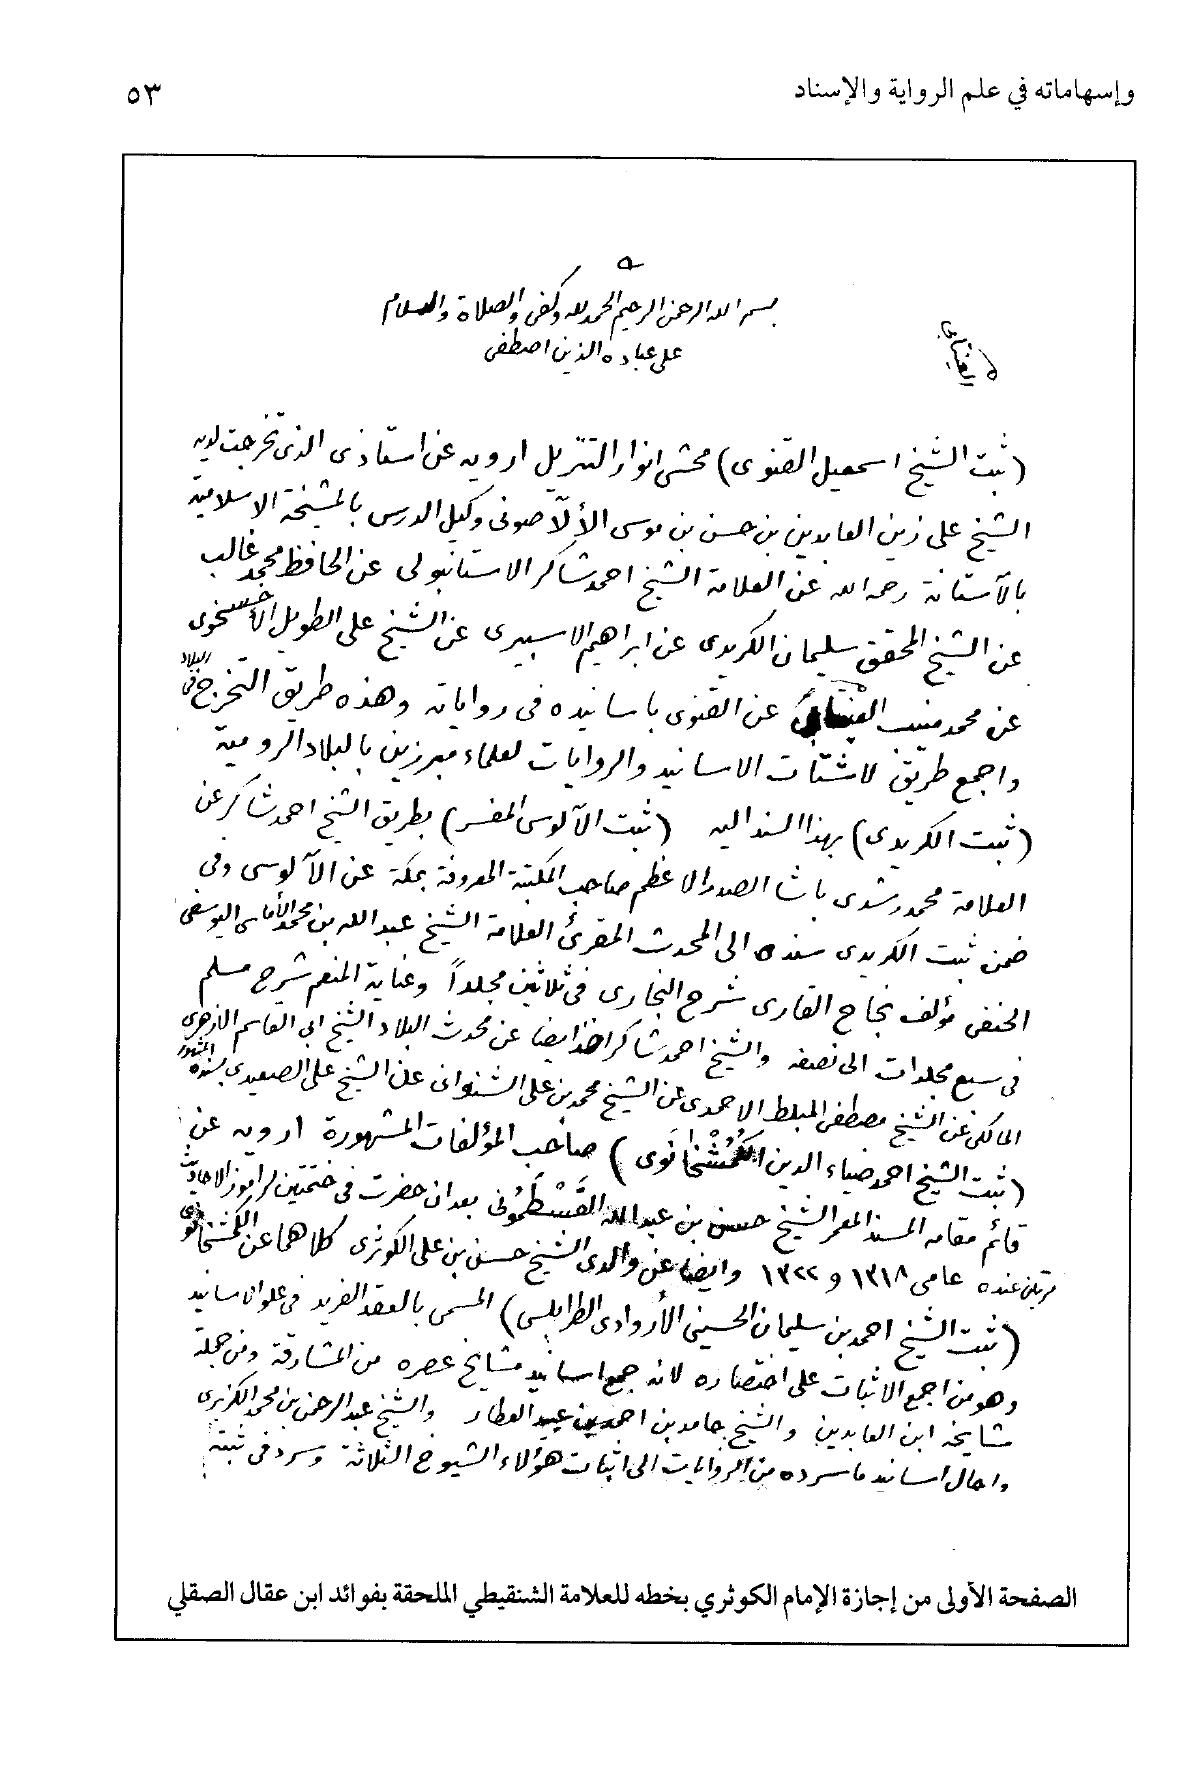 وإسهاماته في علم الرواية والإسناد
٥٣
بسم الله الرحمن الرحيم الحمد لله وكفى والصلاة والسلام
على عباده الذين اصطفى
العينتابى
(ثبت الشيخ اسمعيل القنوى) محشى انوار التنزيل ارويه عن استاذى الذى تخرجت لديه
الشيخ على زين العابدين بن حسن بن موسى الألاصونى وكيل الدرس بالمشيخة الاسلامية
بالآستانة رحمه الله عن العلامة الشيخ احمد شاكر الاستانبولى عن الحافظ محمد غالب
عن الشيخ المحقق سليمان الكريدى عن ابراهيم الاسبيرى عن الشيخ على الطويل
عن محمد منيب العينتابى عن القنوى باسانيده فى رواياته وهذه طريق التخرج فى البلاد
واجمع طريق لاشتات الاسانيد والروايات لعلماء مبرزين بالبلاد الرومية
(ثبت الكريدى) بهذا السند اليه (ثبت الآلوسى المفسر) بطريق الشيخ احمد شاكر عن
العلامة محمد رشدى باشا الصدر الاعظم صاحب المكتبة المعروفة بمكة عن الآلوسى وفى
ضمن ثبت الكريدى سنده الى المحدث المقرئ العلامة الشيخ عبد الله بن محمد الأماسى اليوسفى
الحنفى مؤلف نجاح القارى شرح البخارى فى ثلاثين مجلداً وعناية المنعم شرح مسلم
فى سبع مجلدات الى نصفه والشيخ احمد شاكر اخذ ايضا عن محدث البلاد الشيخ ابى القاسم الازهرى
المالكى عن الشيخ مصطفى المبلط الاحمدى عن الشيخ محمد بن على الشنوانى عن الشيخ على الصعيدى بسنده المشهور
(ثبت الشيخ احمد ضياء الدين الكُمُشْخَانَوى) صاحب المؤلفات المشهورة ارويه عن
قائم مقامه المسند المعمر الشيخ حسن بن عبد الله القَسْطَمُونى بعد ان حضرت فى ختمتين لراموز الاحاديث
مرتين عنده عامى ١٣١٨ و ١٣٢٢ وايضا عن والدى الشيخ حسن بن على الكوثرى كلاهما عن الكمشخانوى
(ثبت الشيخ احمد بن سليمان الحسينى الأروادى الطرابلسى) المسمى بالعقد الفريد فى علو الاسانيد
وهو من اجمع الاثبات على اختصاره لانه جمع اسانيد مشايخ عصره من المشارقة ومن جملة
مشايخه ابن العابدين والشيخ حامد بن احمد بن عبيد العطار والشيخ عبد الرحمن بن محمد الكزبرى
واحال اسانيد ما سرده من الروايات الى اثبات هؤلاء الشيوخ الثلاثة وسرد فى ثبته
الصفحة الأولى من إجازة الإمام الكوثري بخطه للعلامة الشنقيطي الملحقة بفوائد ابن عقال الصقلي